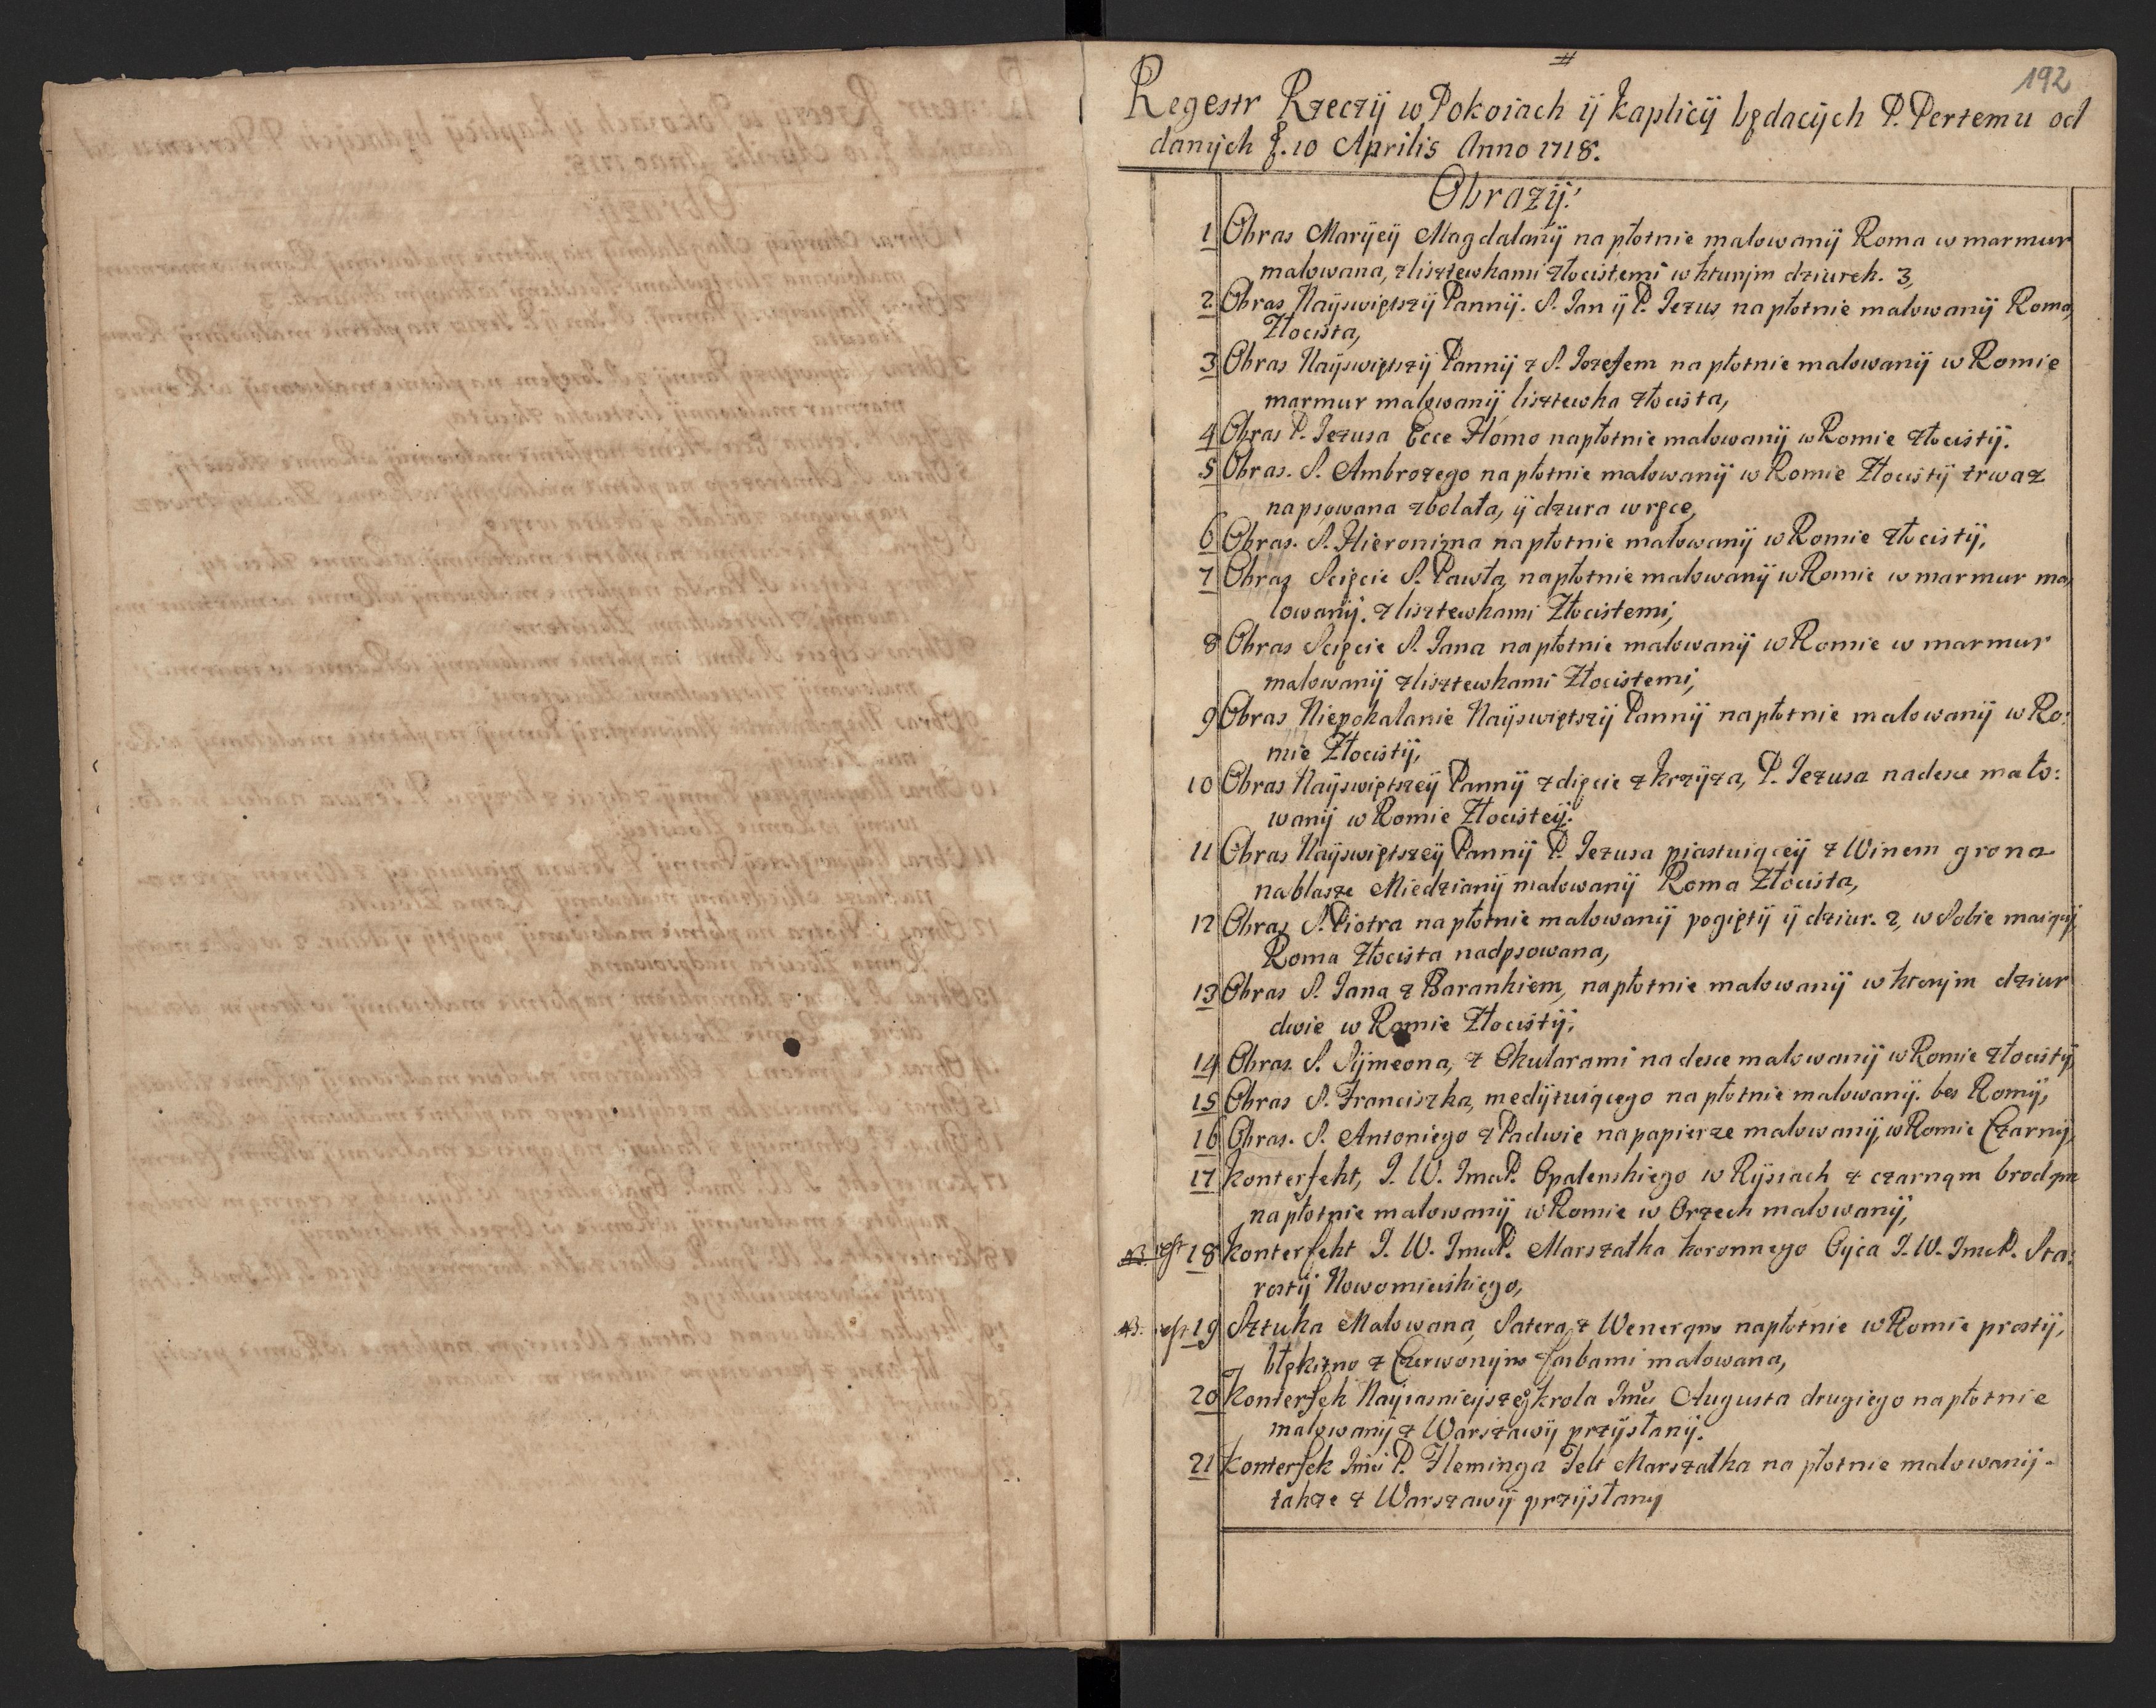 192
Regestr Rzeczij w Pokoiach ij Kaplicij będacijch P. Pertemu od
danijch d. 10 Aprilis Anno 1718.
Obrazij:
1 Obras Marijeij Magdalanij na płotnie malowanij Roma w marmur
malowana, zlisztewkami złocistemi w ktunjm dziureh. 3,
2 Obras Naijswiętszij Pannij. S. Jan ij P. Jezus na płotnie malowanij Roma
Złocista,
3 Obras Naijswiętszij Pannij z S. Jozefem na płotnie malowanij w Romie
marmur malowanij lisztewka złocista,
4 Obras P. Jezusa Ecce Homo na płotnie malowanij w Romie złocistij.
5 Obras. S. Ambrozego na płotnie malowanij w Romie Złocistij trwaz
napsowana zbolała, ij dzura w ręce,
6 Obras. S. Hieronima na płotnie malowanij w Romie złocistij,
7 Obraz Scięcie S. Pawła, na płotnie malowanij w Romie w marmur ma,
lowanij. z lisztewkami Złocistemi,
8 Obras Scięcie S. Jana na płotnie malowanij w Romie w marmur
malowanij zlisztewkami Złocistemi,
9 Obras Niepokalanie Naijswiętszij Pannij na płotnie malowanij w Ro:
mie Złocistij,
10 Obras Naijswiętszeij Pannij zdięcie z krzijza, P. Jezusa nadesce mało:
wanij w Romie Złocisteij.
11 Obras Naijswiętszeij Pannij P. Jezusa piastuiąceij z Winem grona
na blasze Miedzianij malowanij Roma Złocista,
12 Obraz S. Piotra na płotnie malowanij pogiętij ij dziur. 2, w Sobie maiącij,
Roma Złocista nadpsowana,
13 Obras S. Jana z Barankiem, na płotnie malowanij w ktorijm dziur
dwie w Romie Złocistij,
14 Obras. S. Sijmeona, z Okularami na desce malowanij w Romie złocistij,
15 Obras S. Franciszka, medijtuiącego na płotnie malowanij. bes Romij,
16 Obras. S. Antoniego z Padwie na papierze malowanij, w Romie Czarnij,
17 Konterfekt, J. W. JmcP. Opalenskiego w Rijsiach z czarnąm brodąm
na płotnie malowanij w Romie w Orzech malowanij,
NB. 18 Konterfekt J. W. JmcP. Marszałka koronnego Oijca J. W. JmcP. Sta:
rostij Nowomieiskiego,
NB. 19 Sztuka Malowana, Satera, z Wenerąm na płotnie w Romie prostij,
błękitno z Czerwonijm farbami malowana,
20 Konterfek Naijiasnieijszeg Krola Jmci Augusta drugiego na płotnie
malowanij z Warszawij przijsłanij.
21 Konterfek Jmci P. Fleminga Felt Marszałka na płotnie malowanij
takze z Warszawij przijsłany